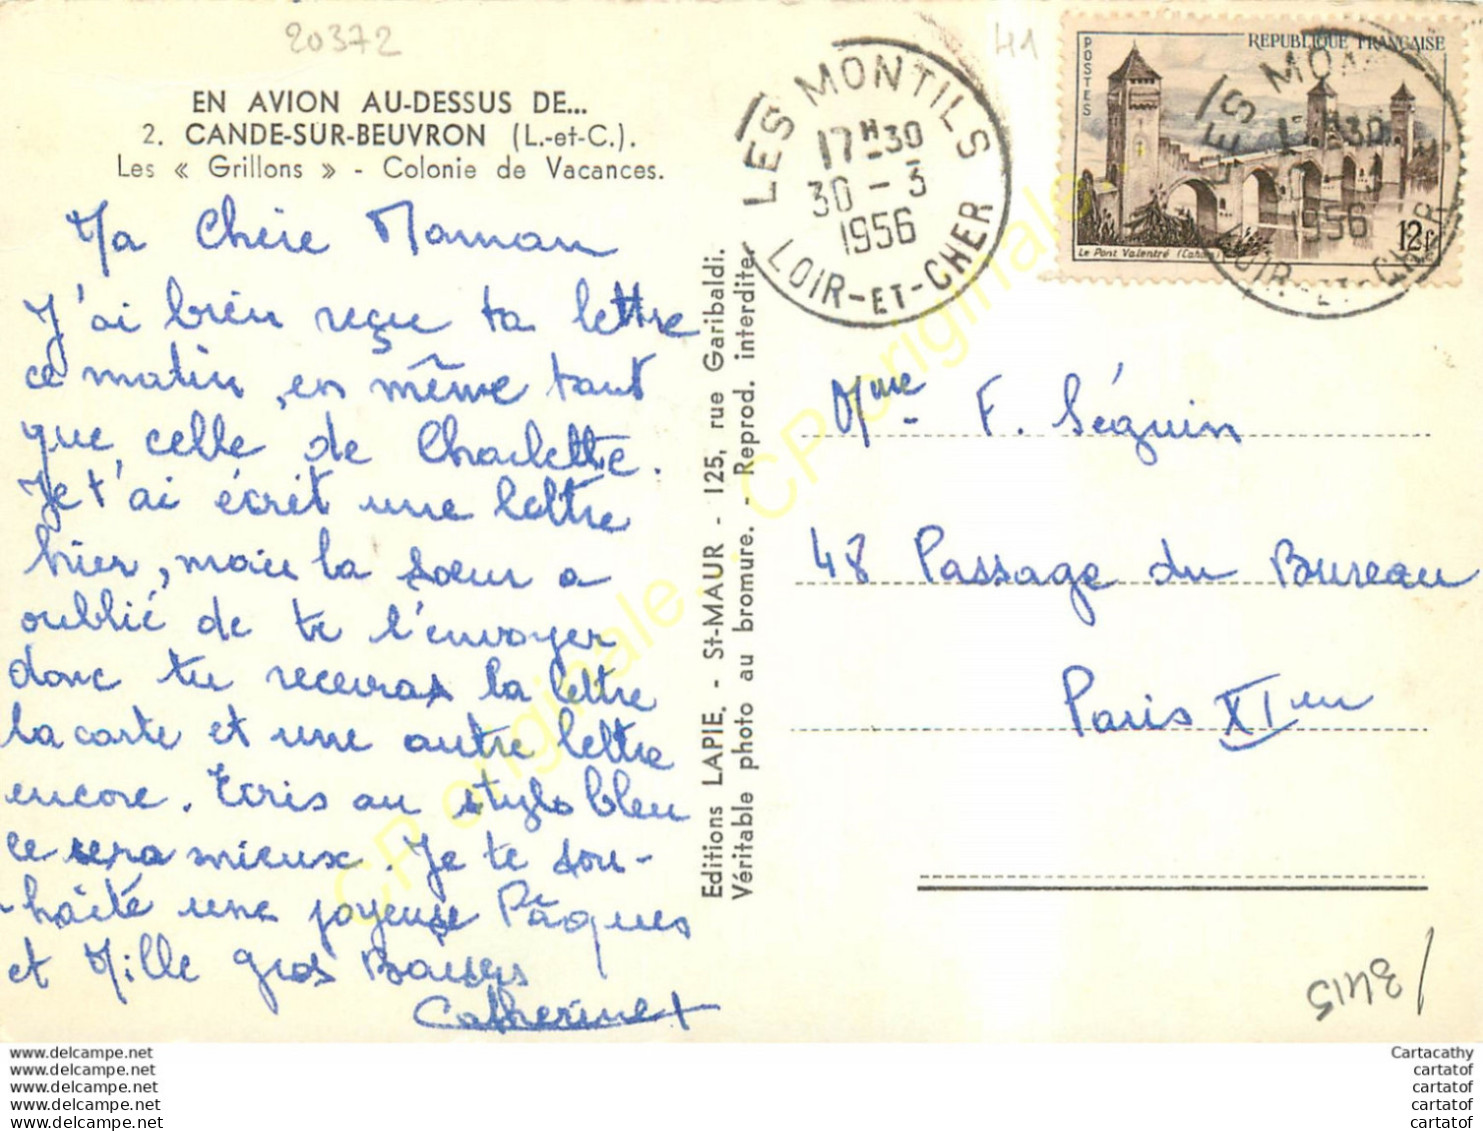 20372
41
EN AVION AU-DESSUS DE...
2. CANDE-SUR-BEUVRON (L.-et-C.).
Les « Grillons » - Colonie de Vacances.
Ma Chère Maman
J'ai bien reçu ta lettre
ce matin, en même tant
que celle de Charlette.
Je t'ai écrit une lettre
hier, mais la sœur a
oublié de te l'envoyer
donc tu recevras la lettre
la carte et une autre lettre
encore. Ecris au stylo bleu
ce sera mieux. Je te sou-
haite une joyeuse Pâques
et Mille gros Baisers
Catherine
Editions LAPIE. - St-MAUR - 125, rue Garibaldi.
Véritable photo au bromure. - Reprod. interdite.
LES MONTILS
17H30
30-3
1956
LOIR-ET-CHER
POSTES
REPUBLIQUE FRANÇAISE
Le Pont Valentré (Cahors)
12f
LES MON
30
1956
LOIR-ET-CHER
Mme F. Séguin
48 Passage du Bureau
Paris XIem
3415
CP originale... CP originale... CP originale...
www.delcampe.net
www.delcampe.net
www.delcampe.net
www.delcampe.net
www.delcampe.net
Cartacathy
cartatof
cartatof
cartatof
cartatof